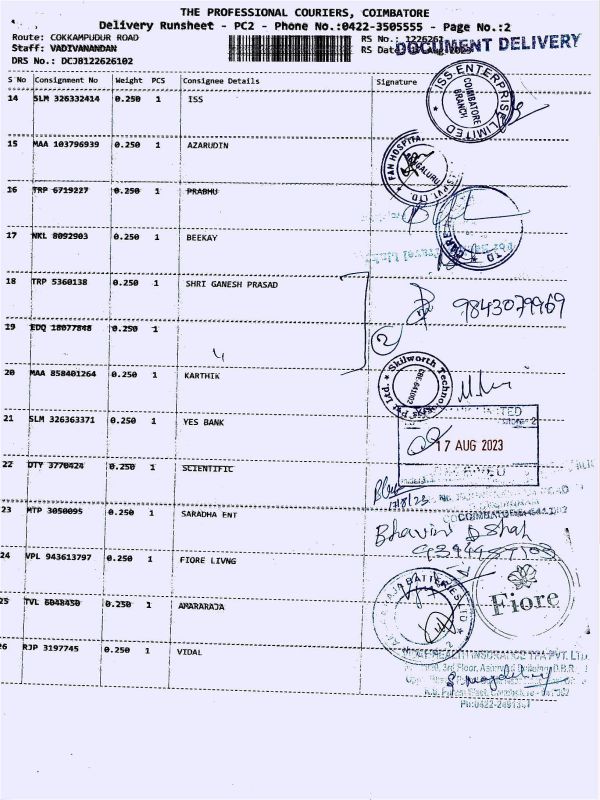 THE PROFESSIONAL COURIERS, COIMBATORE
Delivery Runsheet - PC2 - Phone No.:0422-3505555 - Page No.:2
Route: COKKAMPUDUR ROAD
RS No.: 1226261
Staff: VADIVANANDAN
RS Date
DOCUMENT DELIVERY
DRS No.: DCJB122626102
S No Consignment No Weight PCS Consignee Details Signature
14 SLM 326332414 0.250 1 ISS
ISS ENTERPRISE LIMITED
COIMBATORE BRANCH
15 MAA 103796939 0.250 1 AZARUDIN
PAN HOSPITA
PVT. LTD.
16 TRP 6719227 0.250 1 PRABHU
17 NKL 8092903 0.250 1 BEEKAY
18 TRP 5360138 0.250 1 SHRI GANESH PRASAD
9843079969
19 EDQ 18077848 0.250 1
2
20 MAA 858401264 0.250 1 KARTHIK
Skilworth Technologies Pvt Ltd.
CBE-641002
21 SLM 326363371 0.250 1 YES BANK
17 AUG 2023
22 DTY 3770424 0.250 1 SCIENTIFIC
17/8/23
23 MTP 3050095 0.250 1 SARADHA ENT
Bhavini D Shah
24 VPL 943613797 0.250 1 FIORE LIVNG
Fiore
25 TVL 6048450 0.250 1 AMARARAJA
RAJA BATTERIES LTD
26 RJP 3197745 0.250 1 VIDAL
HEALTH INSURANCE TPA PVT. LTD.
3rd Floor,